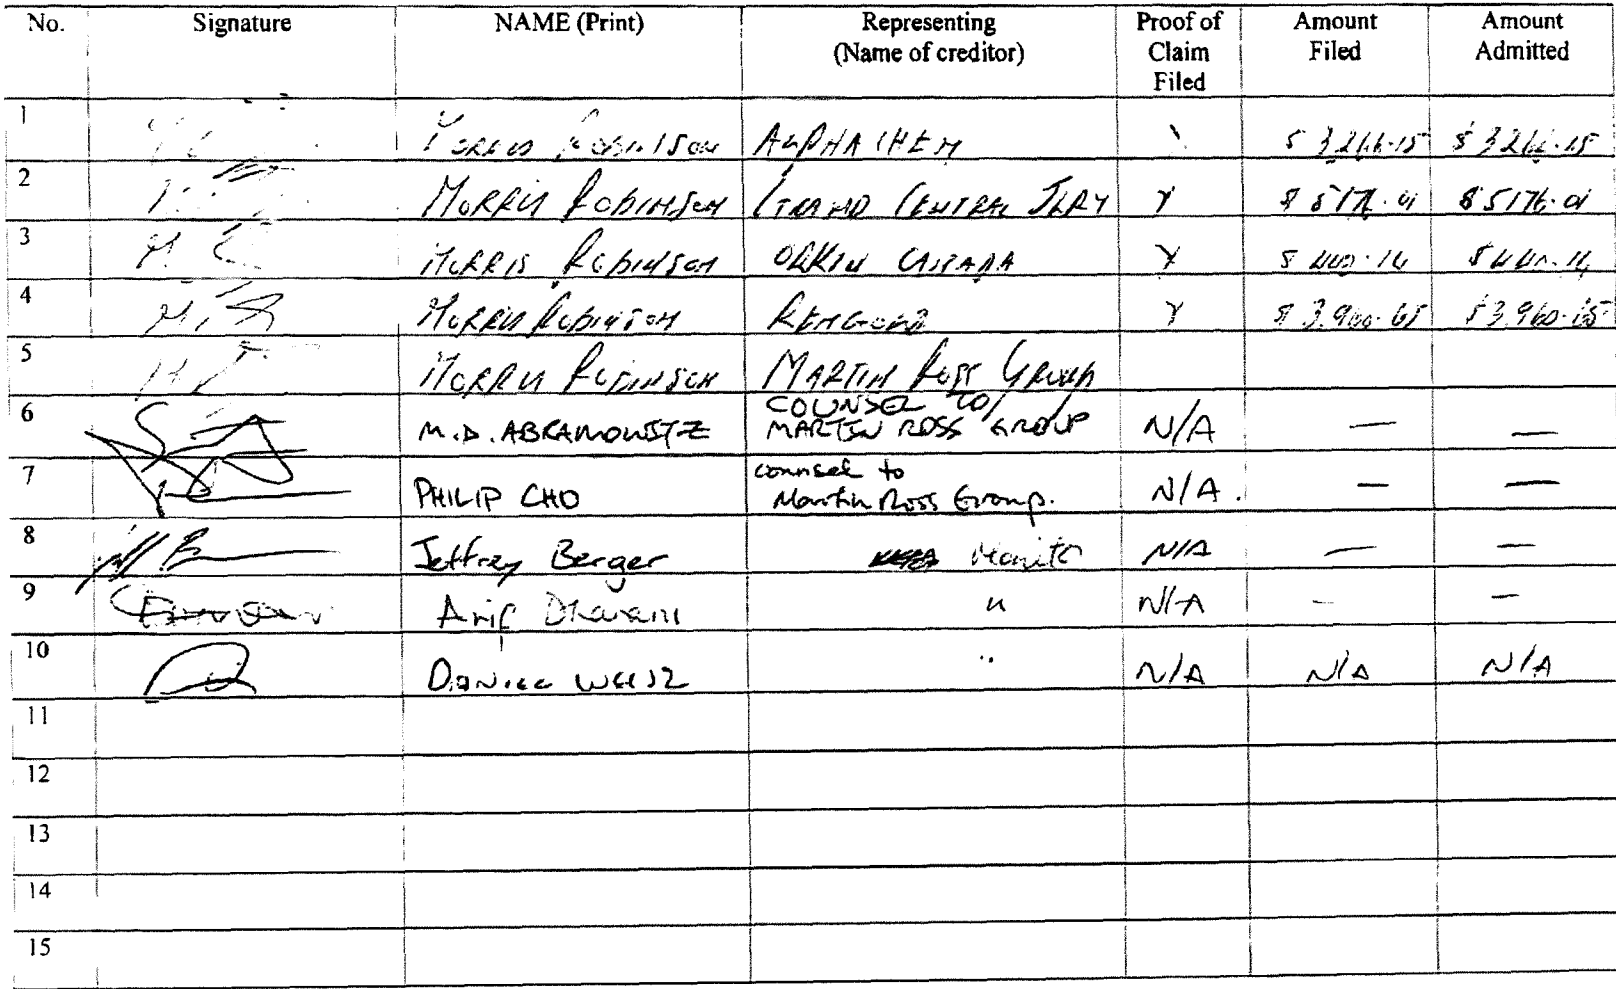 No. Signature NAME (Print) Representing (Name of creditor) Proof of Claim Filed Amount Filed Amount Admitted
1 ROBINSON ALPHACHEM $3266.15 $3266.15
2 MORRIS ROBINSON GRAND CENTRAL Y $5176.01 $5176.01
3 MORRIS ROBINSON ORKIN CANADA Y
4 MORRIS ROBINSON Y $3,960.65 $3,960.65
5 MORRIS ROBINSON MARTIN ROSS GROUP
6 M.D. ABRAMOWITZ COUNSEL TO MARTIN ROSS GROUP N/A — —
7 PHILIP CHO counsel to Martin Ross Group. N/A. — —
8 Jeffrey Berger N/A — —
9 Arif Dhanani " N/A — —
10 DANIEL WEISZ " N/A N/A N/A
11
12
13
14
15